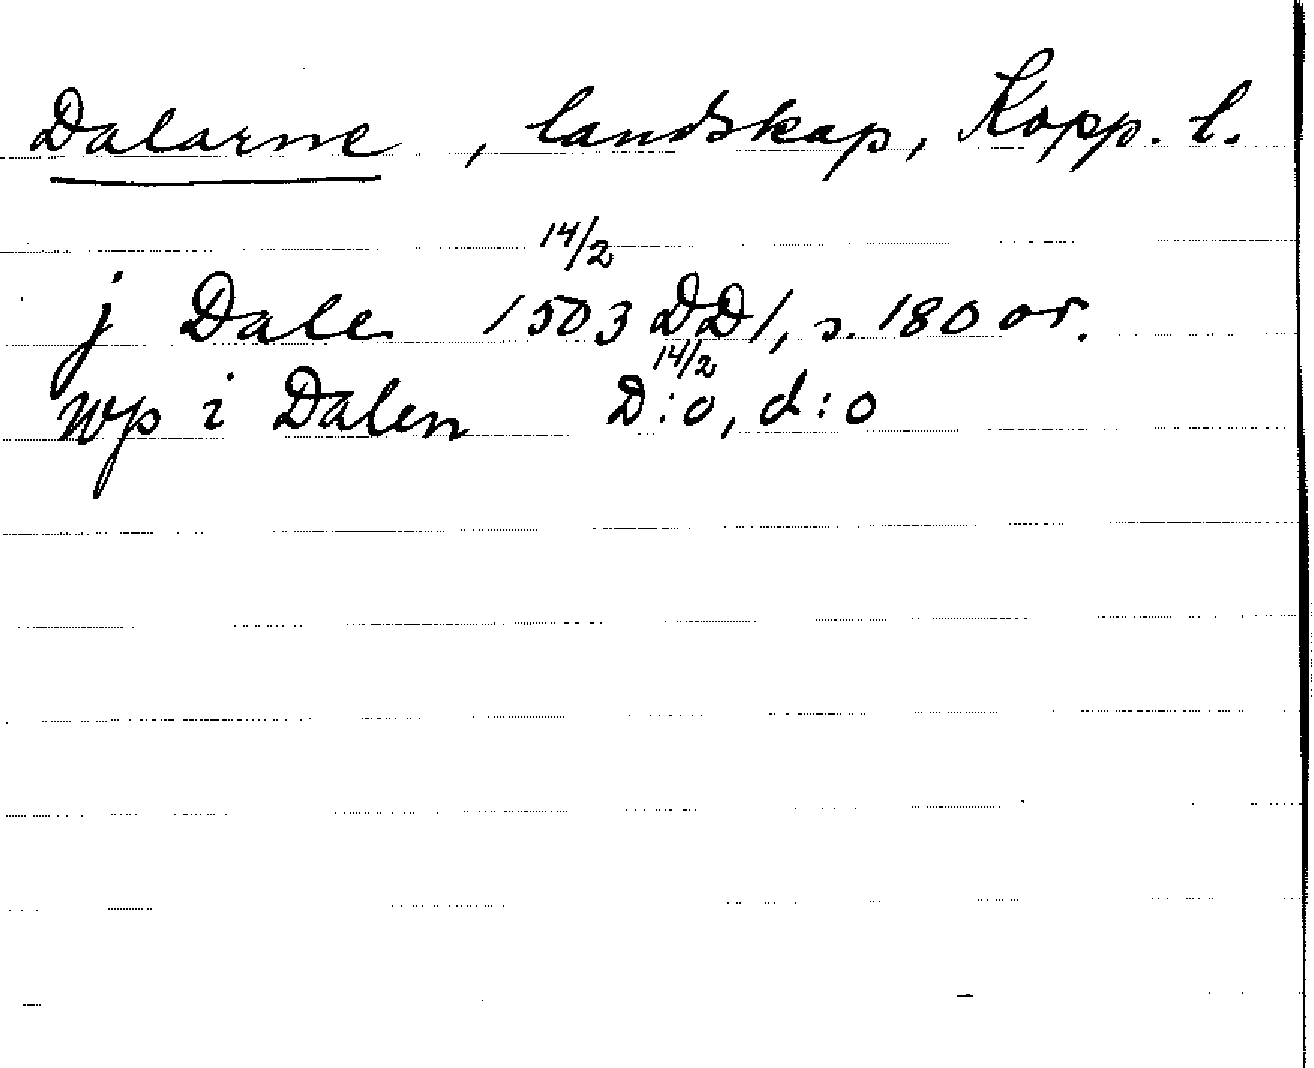 Dalarne, landskap, Kopp. l.
14/2
j Dale 1503 DD1, s. 180 or.
14/2
wp i Dalen D:o, d:o